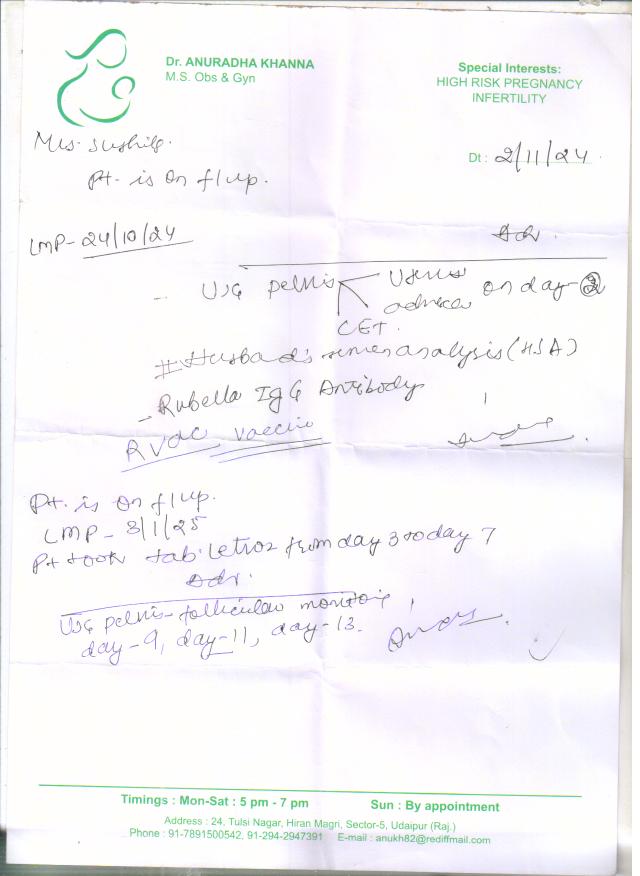 Dr. ANURADHA KHANNA
M.S. Obs & Gyn
Special Interests:
HIGH RISK PREGNANCY
INFERTILITY
Mrs. Sushila.
Dt : 2/11/24
Pt. is on f/up.
LMP- 24/10/24
Adv.
- USG pelvis Uterus
adnexa on day-2
CET.
# Husband's semen analysis (HSA)
- Rubella IgG Antibody
R Vac Vaccine
Pt. is on f/up.
LMP - 3/1/25
Pt took tab. Letroz from day 3 to day 7
Adv.
USG pelvis - follicular monitoring
day-9, day-11, day-13.
Timings : Mon-Sat : 5 pm - 7 pm Sun : By appointment
Address : 24, Tulsi Nagar, Hiran Magri, Sector-5, Udaipur (Raj.)
Phone : 91-7891500542, 91-294-2947391 E-mail : anukh82@rediffmail.com